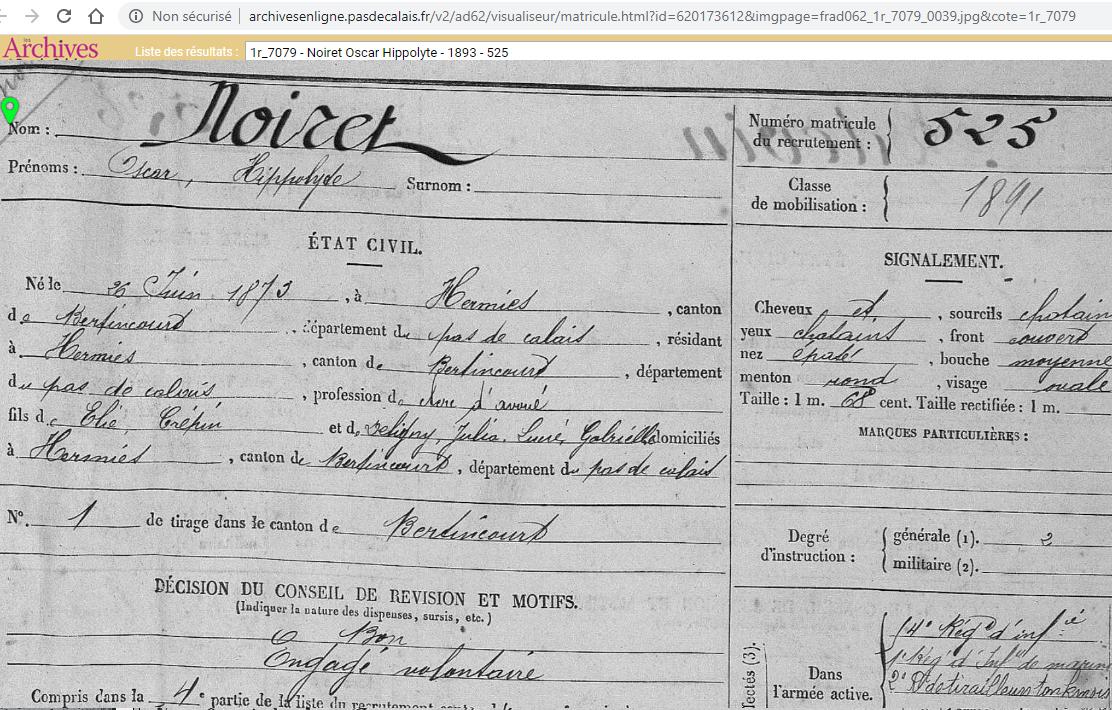 Non sécurisé | archivesenligne.pasdecalais.fr/v2/ad62/visualiseur/matricule.html?id=620173612&imgpage=frad062_1r_7079_0039.jpg&cote=1r_7079
les Archives Liste des résultats : 1r_7079 - Noiret Oscar Hippolyte - 1893 - 525
Nom : Noiret
Prénoms : Oscar, Hippolyte Surnom :
Numéro matricule du recrutement : 525
Classe de mobilisation : 1891
ÉTAT CIVIL.
Né le 26 Juin 1873, à Hermies, canton
de Bertincourt, département du pas de calais, résidant
à Hermies, canton de Bertincourt, département
du pas de calais, profession de clerc d'avoué
fils de Elie, Crépin et de Deligny, Julia, Lucie, Gabrielle domiciliés
à Hermies, canton de Bertincourt, département du pas de calais
SIGNALEMENT.
Cheveux et, sourcils chatain
yeux chatains, front couvert
nez épaté, bouche moyenne
menton rond, visage ovale
Taille : 1 m. 68 cent. Taille rectifiée : 1 m.
MARQUES PARTICULIÈRES :
N°. 1 de tirage dans le canton de Bertincourt
Degré d'instruction : générale (1). 2
militaire (2).
DÉCISION DU CONSEIL DE REVISION ET MOTIFS.
(Indiquer la nature des dispenses, sursis, etc.)
Bon
Engagé volontaire
Compris dans la 4e partie de la liste du recrutement
Dans l'armée active.
Rég d'infie
1er Rég d'Infie de marine
2e Rt de tirailleurs tonkinois